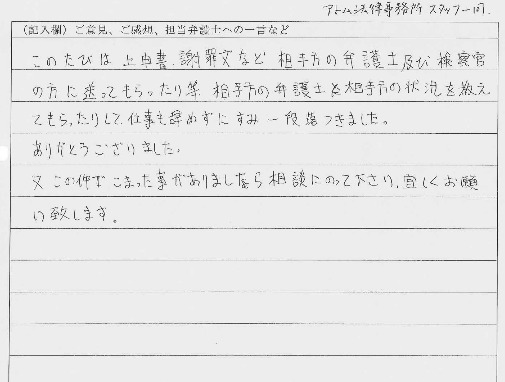 アトム法律事務所 スタッフ一同.
(記入欄)ご意見、ご感想、担当弁護士への一言など
このたびは 上申書、謝罪文など 相手方の弁護士及び検察官
の方に送ってもらったり等 相手方の弁護士と相手方の状況を教え
てもらったりして、仕事も辞めずにすみ 一段落つきました。
ありがとうございました。
又 この件で こまった事がありましたら 相談にのって下さり、宜しくお願
い致します。